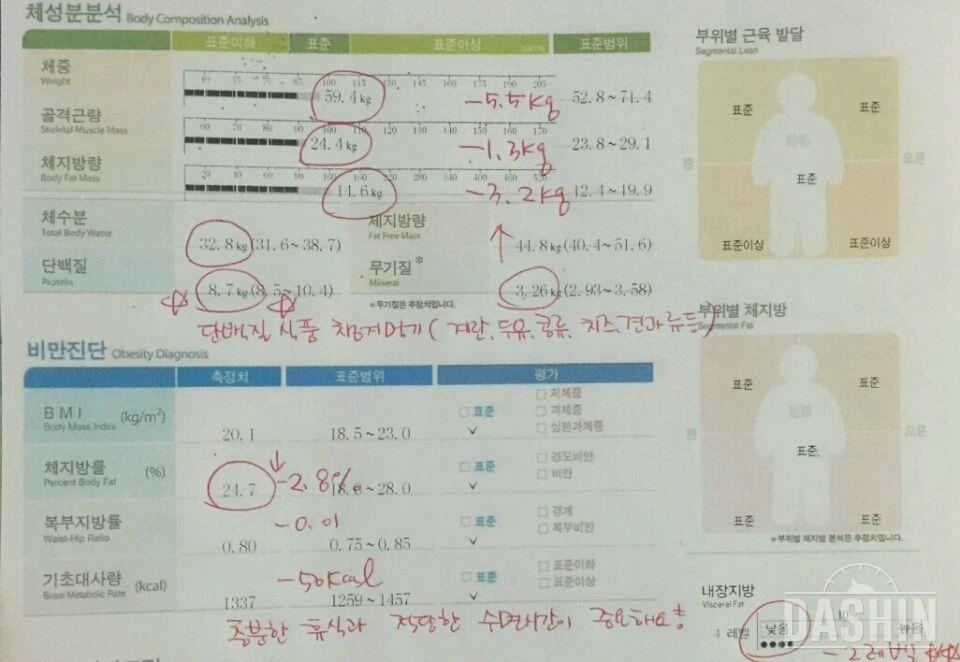 체성분분석 Body Composition Analysis
표준이하 표준 표준이상 표준범위
체중
Weight
59.4 kg -5.5kg 52.8~71.4
골격근량
Skeletal Muscle Mass
24.4 kg -1.3kg 23.8~29.1
체지방량
Body Fat Mass
14.6 kg -3.2kg 12.4~19.9
체수분
Total Body Water
32.8 kg (31.6~38.7)
제지방량
Fat Free Mass
44.8 kg (40.4~51.6)
단백질
Protein
8.7 kg (8.5~10.4)
무기질*
Mineral
3.26 kg (2.93~3.58)
*무기질은 추정치입니다.
단백질 식품 챙겨먹기 (계란, 두유, 콩류, 치즈, 견과류 등)
비만진단 Obesity Diagnosis
측정치 표준범위 평가
BMI (kg/m²)
Body Mass Index
20.1 18.5~23.0
표준 저체중 과체중 심한과체중
체지방률 (%)
Percent Body Fat
24.7 -2.8% 18.0~28.0
표준 경도비만 비만
복부지방률
Waist-Hip Ratio
-0.01
0.80 0.75~0.85
표준 경계 복부비만
기초대사량 (kcal)
Basal Metabolic Rate
-50kcal
1337 1259~1457
표준 표준이하 표준이상
충분한 휴식과 적당한 수면시간이 중요해요!
부위별 근육 발달
Segmental Lean
표준 표준
표준
표준이상 표준이상
부위별 체지방
Segmental Fat
표준 표준
표준
표준 표준
*부위별 체지방 분석은 추정치입니다.
내장지방
Visceral Fat
4 레벨 낮음 10 높음
-2레벨
DASHIN